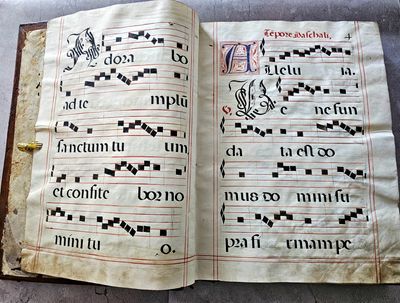 Adora bo
ad te mplū
sanctum tu um
et confite bor no
mini tu o.
Tēpore Paschali. 4
Allelu ia.
Be ne fun
da ta est do
mus do mini su
pra fi rmam pe